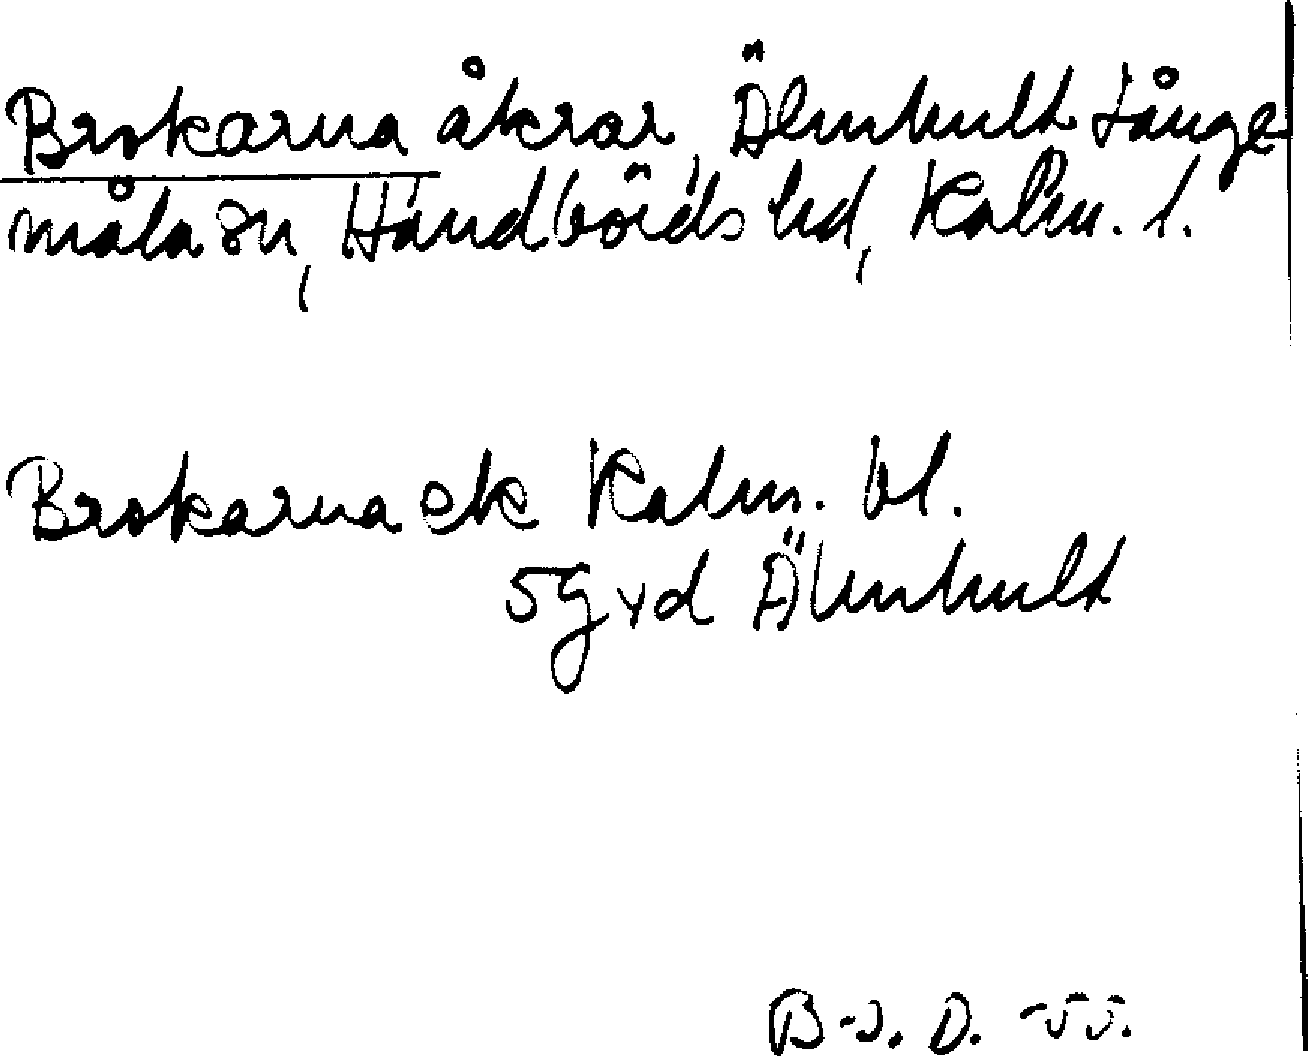 Brokarna åkrar, Älmhult Långe
måla sn, Handbörds hd, Kalm. l.
Brokarna ek Kalm. bl.
5g yd Älmhult
B-J. D. -55.